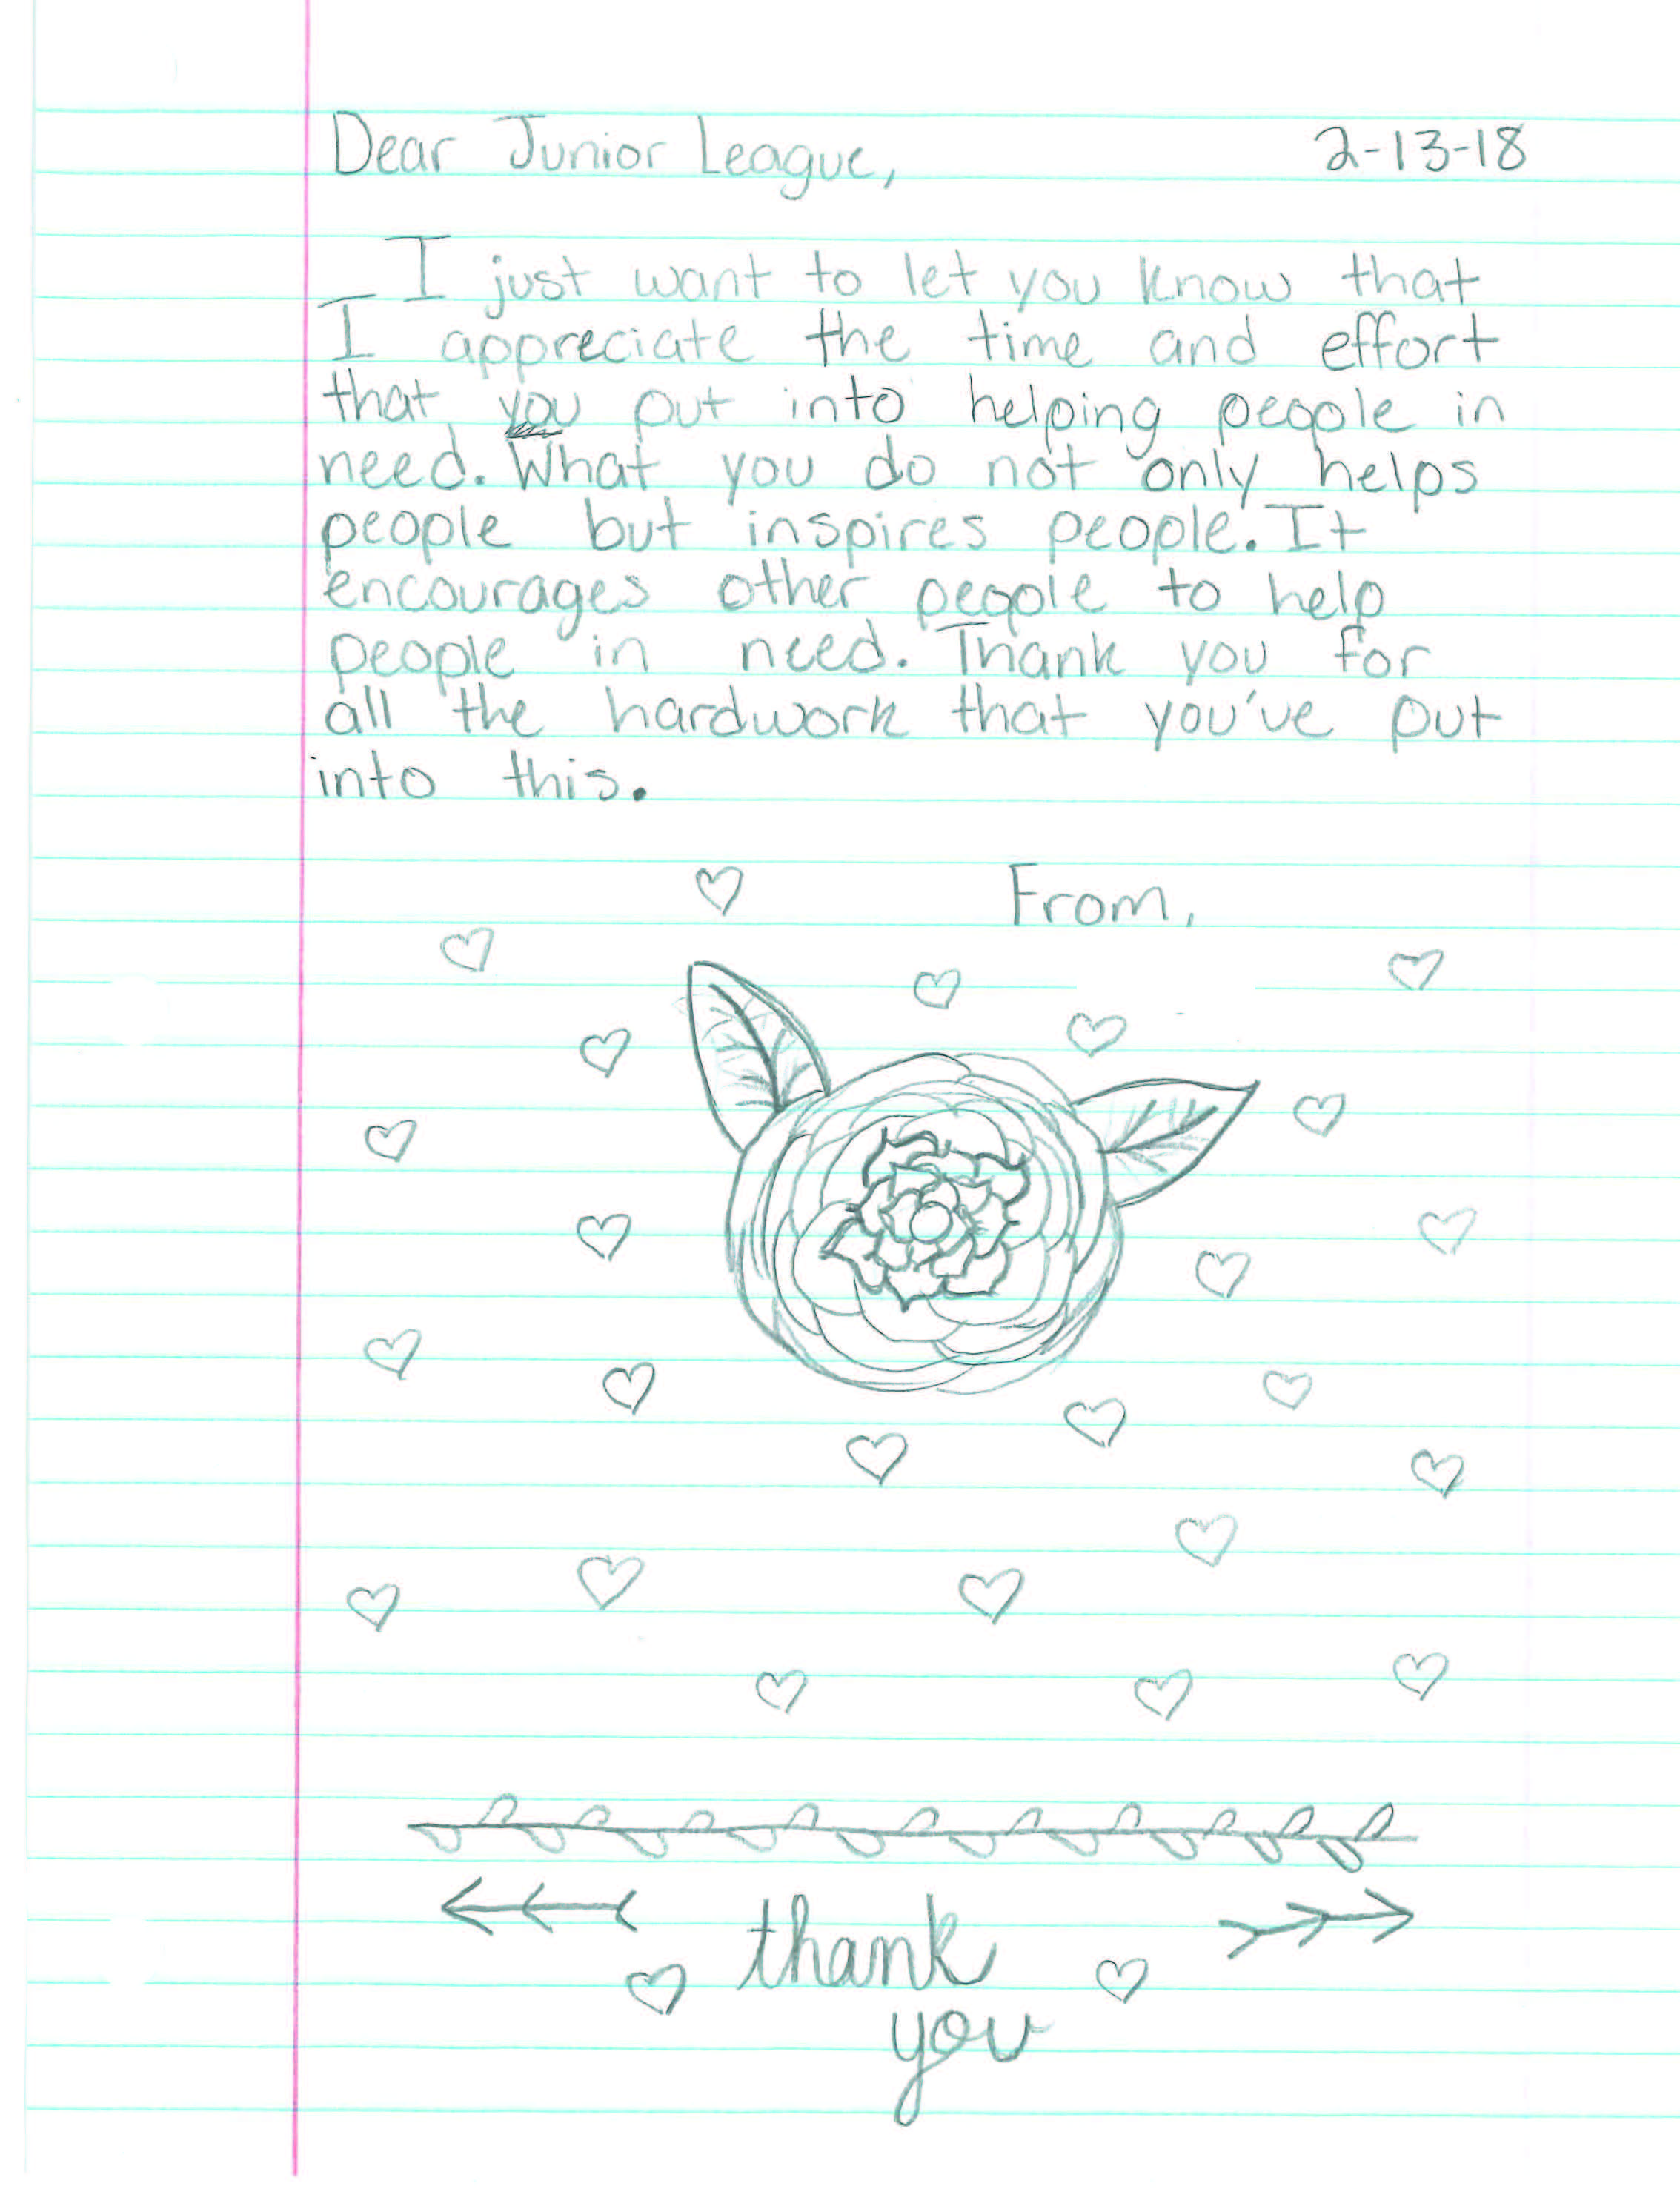 Dear Junior League, 2-13-18
I just want to let you know that
I appreciate the time and effort
that you put into helping people in
need. What you do not only helps
people but inspires people. It
encourages other people to help
people in need. Thank you for
all the hardwork that you've put
into this.
From,
thank
you